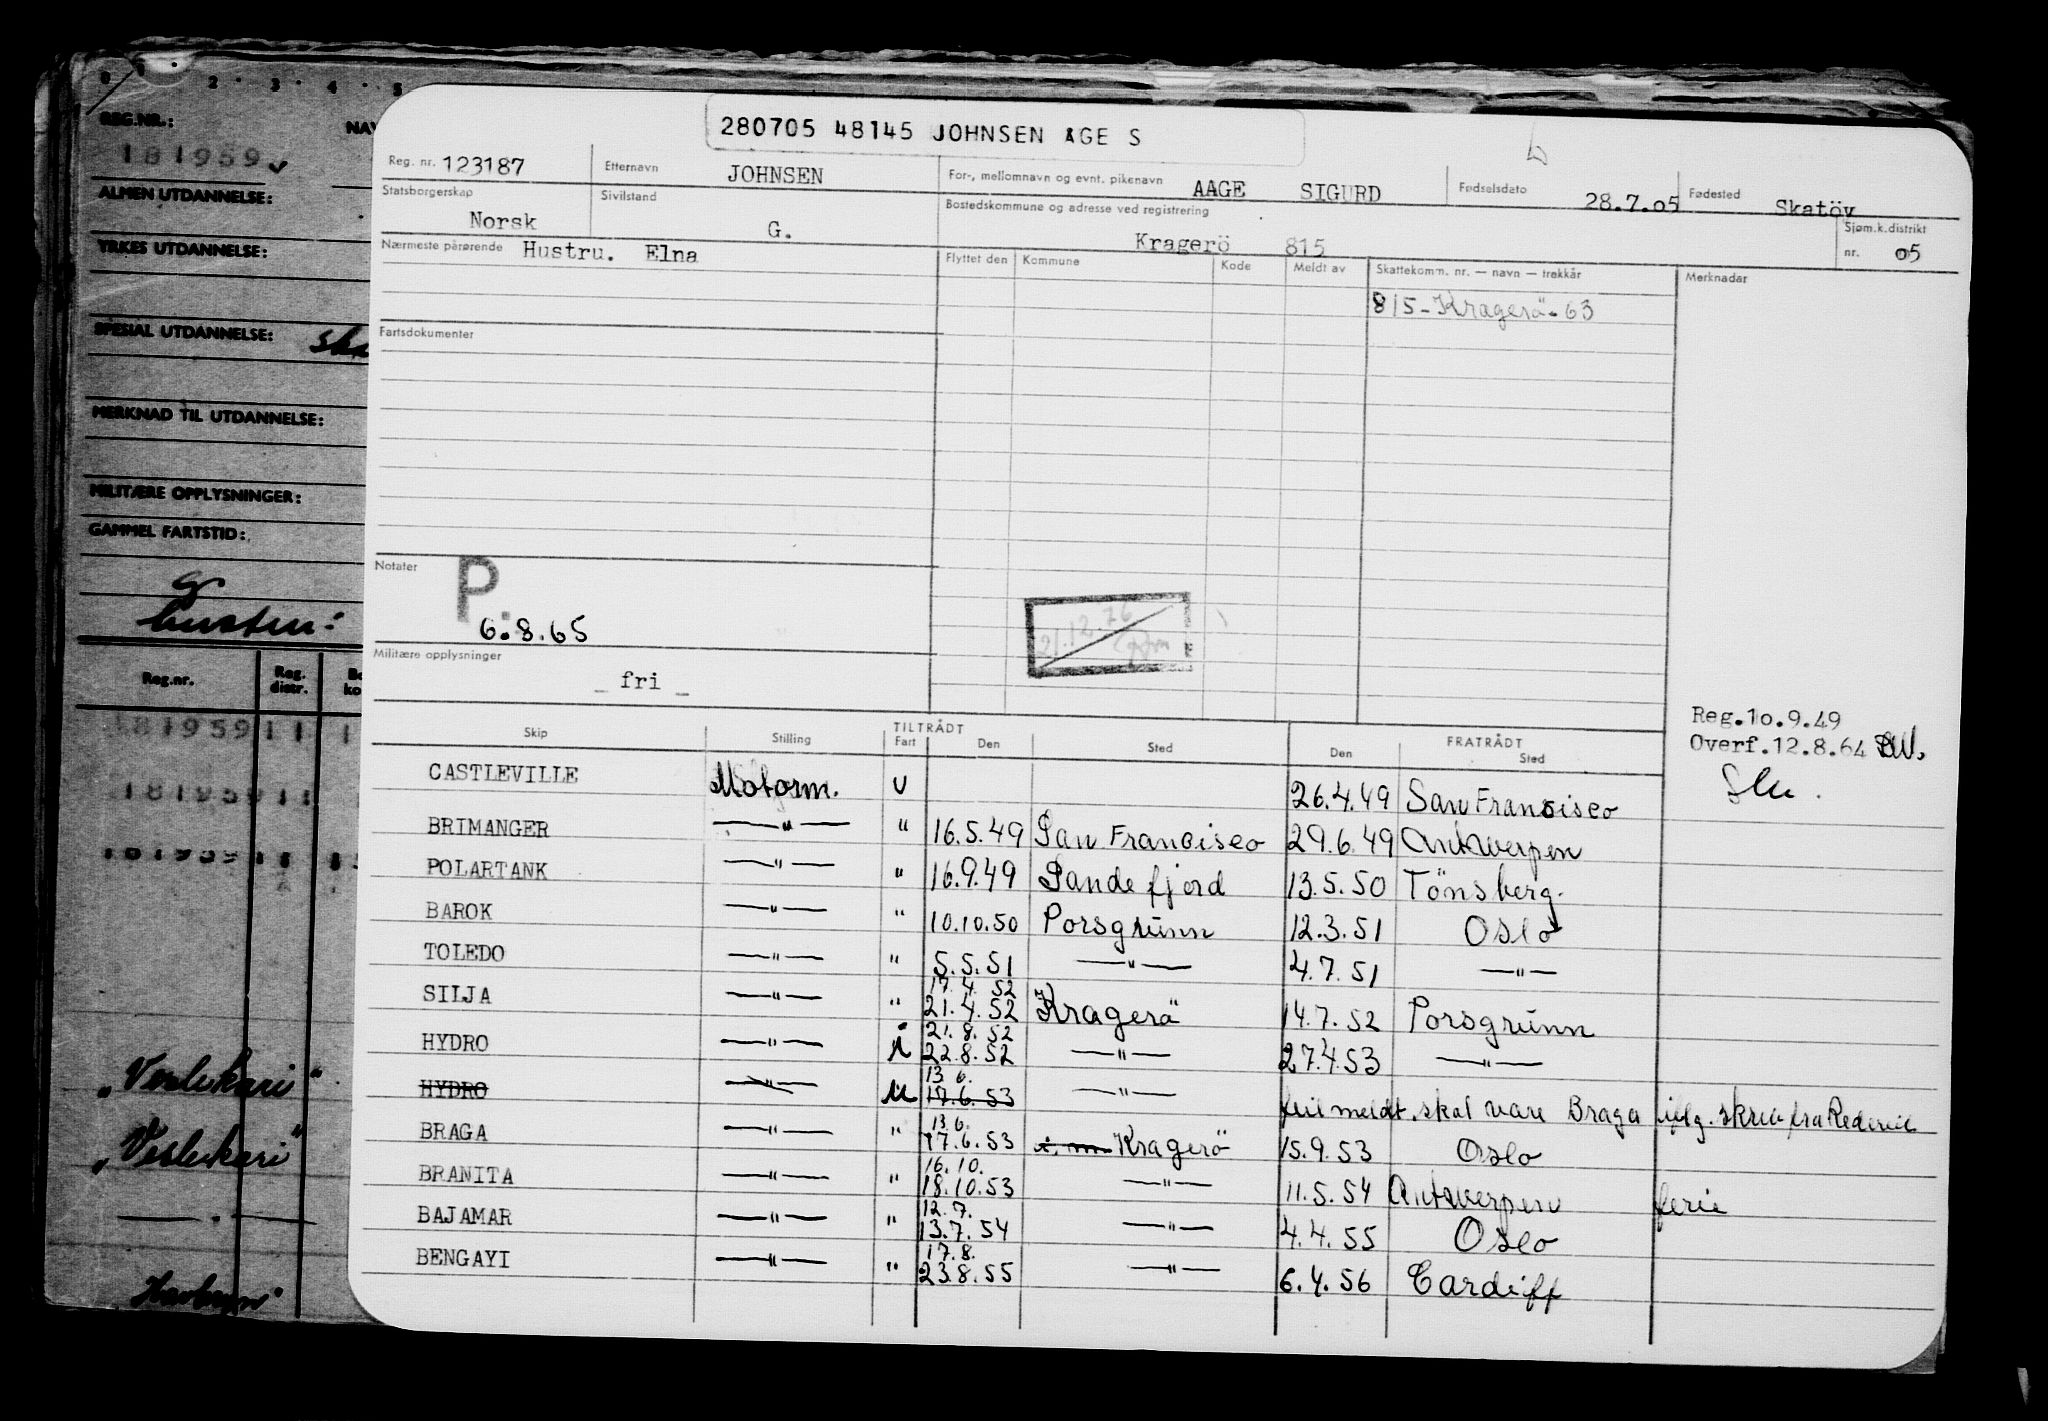 0 2 3 4 5
REG.NR.: NAV
181959
ALMEN UTDANNELSE:
YRKES UTDANNELSE:
SPESIAL UTDANNELSE:
MERKNAD TIL UTDANNELSE:
MILITÆRE OPPLYSNINGER:
GAMMEL FARTSTID:
Reg.nr. Reg. distr.
181959 11 1
181959 11
"Veslekari"
"Veslekari"
280705 48145 JOHNSEN AGE S
Reg. nr. 123187 Etternavn JOHNSEN For-, mellomnavn og evnt. pikenavn AAGE SIGURD Fødselsdato 28.7.05 Fødested Skatöy
Statsborgerskap Norsk Sivilstand G. Bostedskommune og adresse ved registrering Kragerö 815 Sjøm.k.distrikt nr. 05
Nærmeste pårørende Hustru. Elna Flyttet den Kommune Kode Meldt av Skattekomm. nr. — navn — trekkår Merknadar
815-Kragerö-63
Fartsdokumenter
Notater P.
6.8.65
21.12.76
Militære opplysninger
_ fri _
Reg.10.9.49
Overf.12.8.64
Skip Stilling TILTRÅDT Fart Den Sted FRATRÅDT Den Sted
CASTLEVILLE Motorm. U 26.4.49 San Francisco
BRIMANGER —"— " 16.5.49 San Francisco 29.6.49 Antwerpen
POLARTANK —"— " 16.9.49 Sandefjord 13.5.50 Tönsberg.
BAROK —"— " 10.10.50 Porsgrunn 12.3.51 Oslo
TOLEDO —"— " 5.5.51 —"— 4.7.51 —"—
SILJA —"— " 17.4.52 21.4.52 Kragerö 14.7.52 Porsgrunn
HYDRO —"— i 21.8.52 22.8.52 —"— 27.4.53 —"—
HYDRO —"— u 13.6. 17.6.53 —"— feilmeldt. skal være Braga iflg. skriv fra Rederiet
BRAGA —"— " 13.6. 17.6.53 Kragerö 15.9.53 Oslo
BRANITA —"— " 16.10. 18.10.53 —"— 11.5.54 Antwerpen ferie
BAJAMAR —"— " 12.7. 13.7.54 —"— 4.4.55 Oslo
BENGAYI —"— " 17.8. 23.8.55 —"— 6.4.56 Cardiff